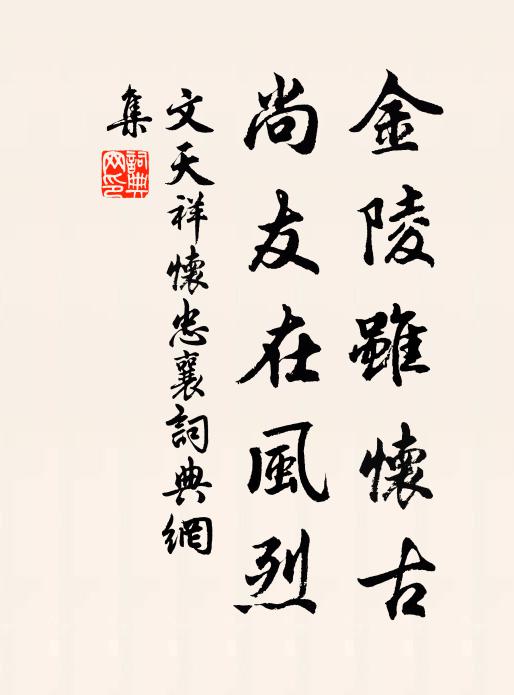 金陵雖懷古
尚友在風烈
文天祥懷忠襄詞典網
集
詞典
网印